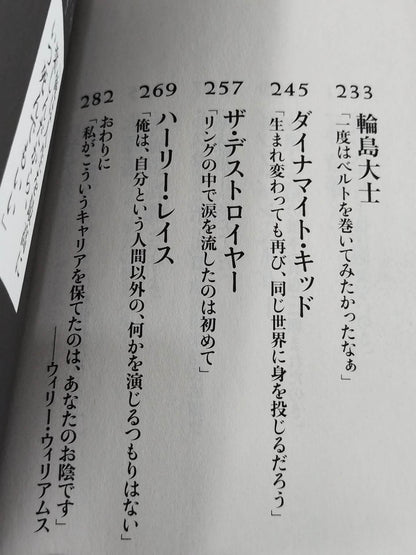 233
輪島大士
「一度はベルトを巻いてみたかったなぁ」
245
ダイナマイト・キッド
「生まれ変わっても再び、同じ世界に身を投じるだろう」
257
ザ・デストロイヤー
「リングの中で涙を流したのは初めて」
269
ハーリー・レイス
「俺は、自分という人間以外の、何かを演じるつもりはない」
282
おわりに
「私がこういうキャリアを保てたのは、あなたのお陰です」
――ウィリー・ウィリアムス